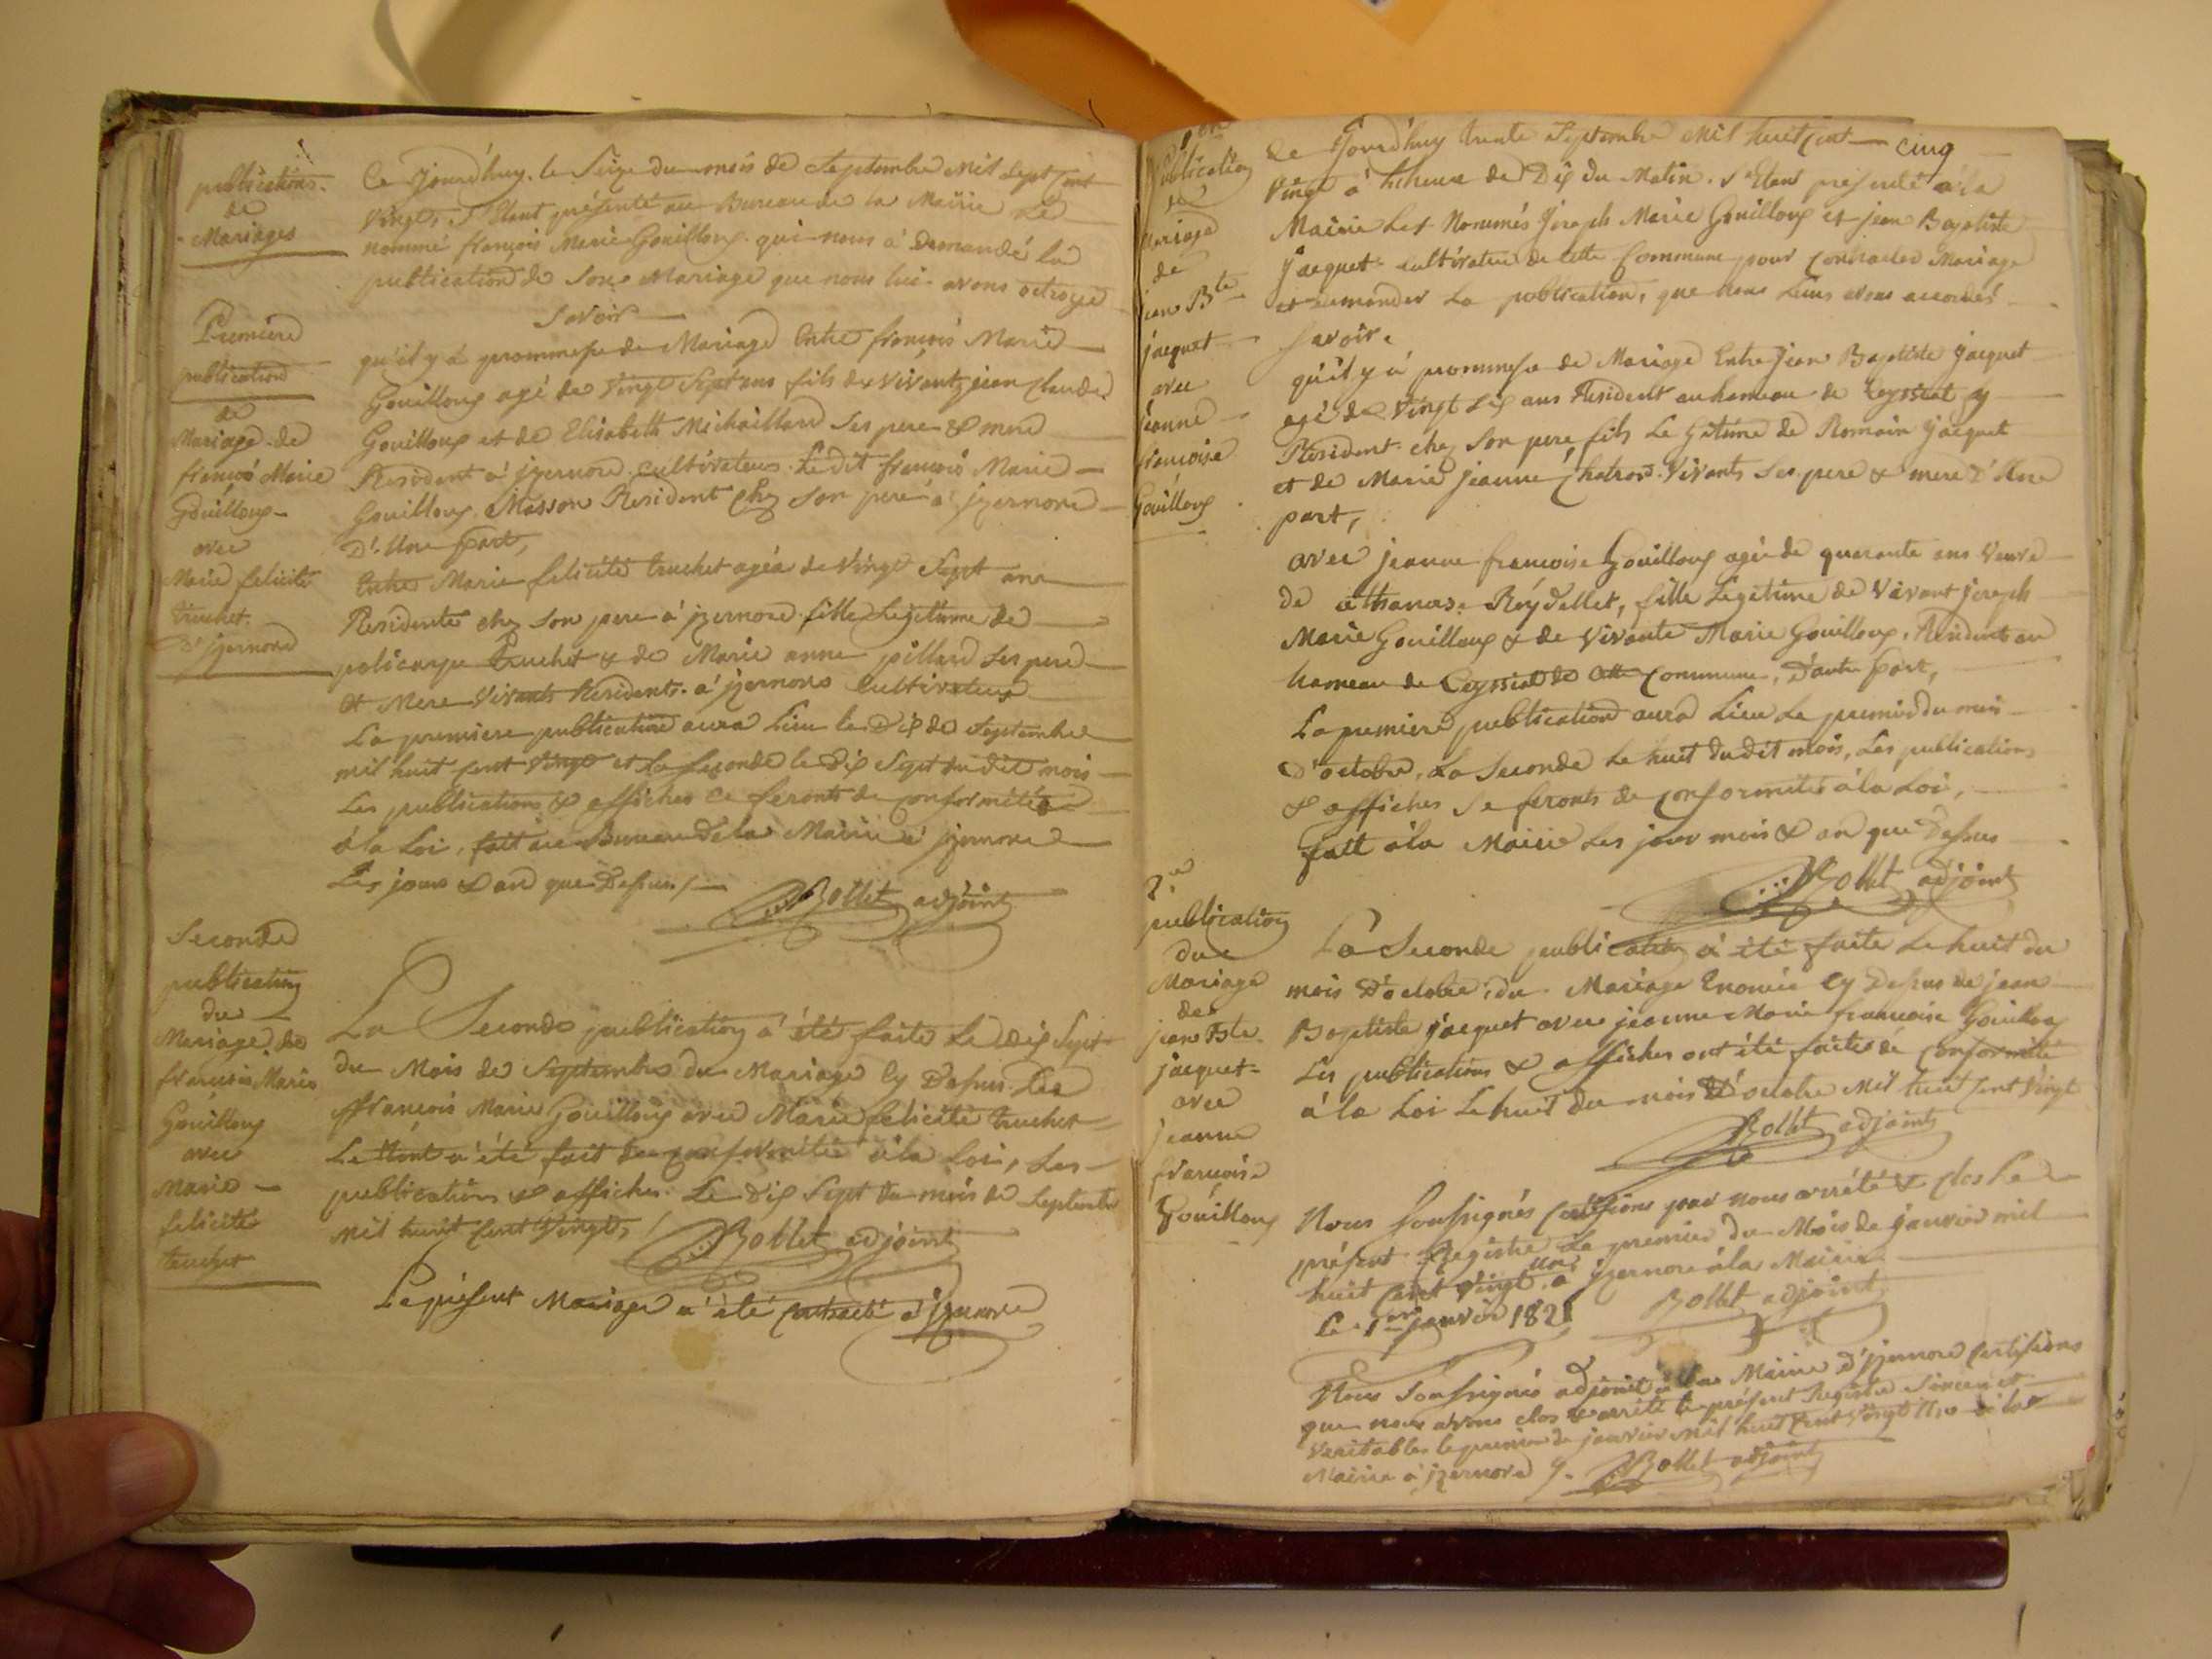 publications
de
Mariages
Ce Jourd'huy le Seize du mois de Septembre Mil Sept Cent
Vingts, S'Etant présenté au Bureau de la Mairie Le
nommé françois Marie Gouilloux qui nous a Demandé la
publication de Son Mariage que nous lui avons octroyé
Savoir
Premiere
publication
de
Mariage de
françois Marie
Gouilloux
avec
Marie felicité
truchet
D'jzernore
qu'il y a prommesse de Mariage Entre françois Marie
Gouilloux agé de Vingt Sept ans fils de vivants jean Claude
Gouilloux et de Elisabeth Michaillard Ses pere & mere
Résident à jzernore cultivateurs Ledit françois Marie
Gouilloux Masson Resident chez Son pere à jzernore
D'Une part,
Entre Marie felicité truchet agéa de Vingt Sept ans
Residente chez Son pere à jzernore fille Legitime de
policarpe truchet & de Marie anne pillard Ses pere
et Mere Vivants Residents à jzernore Cultivateurs
La premiere publication aura Lieu le Dix de Septembre
mil huit cent Vingt et La Seconde le Dix Sept du dit mois
Les publications & affiches ce feronts de conformitée
à la Loi, fait au Bureau de la Mairie à jzernore
Les jours & an que Dessus
Bollet adjoint
Seconde
publication
du
Mariage de
françois Marie
Gouilloux
avec
Marie
felicité
truchet
La Seconde publication a été faite Le dix Sept
du Mois de Septembre du Mariage Cy Dessus de
ffrançois Marie Gouilloux avec Marie felicité truchet
Le tout a été fait de conformitée à la Loi, Les
publications & affiches Le Dix Sept du mois de Septembre
mil huit Cent Vingts
Bollet adjoint
Le présent Mariage a été contracté à jzernore
1ere
publication
de
Mariage
de
jean Bte
jacquet
avec
jeanne
françoise
Gouilloux
Ce Jourd'huy trente Septembre Mil huit Cent cinq
Vingt à heure de Dix du Matin S'Etant présenté à la
Mairie Les Nommés Joseph Marie Gouilloux et jean Baptiste
Jacquet cultivateur de cette Commune pour contracter Mariage
et demander La publication, que nous Leurs avons accordés
Savoir
qu'il y à prommesse de Mariage Entre Jean Baptiste jacquet
agé de Vingt Six ans Résident au hameau de Ceyssiat y
Résident chez Son pere, fils Legitime de Romain jacquet
et de Marie jeanne Chatrod Vivants Ses pere & mere D'Une
part,
avec jeanne françoise Gouilloux agée de quarante ans Veuve
de athanase Reydellet, fille Legitime de Vivant joseph
Marie Gouilloux & de Vivante Marie Gouilloux, Résident au
hameau de Ceyssiat de cette Commune, D'autre part,
La premiere publication aura Lieu Le premier du mois
D'octobre, La Seconde Le huit du dit mois, Les publications
& affiches Se feronts de conformités à la Loi,
fait à la Mairie Les jour mois & an que Dessus
Bollet adjoint
2e
publication
du
Mariage
de
jean Bte
jacquet
avec
jeanne
françoise
Gouilloux
La Seconde publication à été faite Le huit du
mois D'octobre, du Mariage Enoncée Cy Dessus de jean
Baptiste jacquet avec jeanne Marie françoise Gouilloux
Les publications & affiches ont été faites de conformité
à la Loi Le huit du mois D'octobre Mil huit Cent Vingt
Bollet adjoint
Nous Soussignés Certifions par nous arrêté & clos Le
présent Registre Le premier du Mois de janvier mil
huit Cent Vingt un à jzernore à la Mairie
Le 1er janvier 1821
Bollet adjoint
Nous Soussignés adjoint à la Mairie D'jzernore Certifions
que nous avons clos & arrêté le présent Registre Sincer et
Veritables le premier de janvier Mil huit Cent Vingt Un à la
Mairie à jzernore
Bollet adjoint